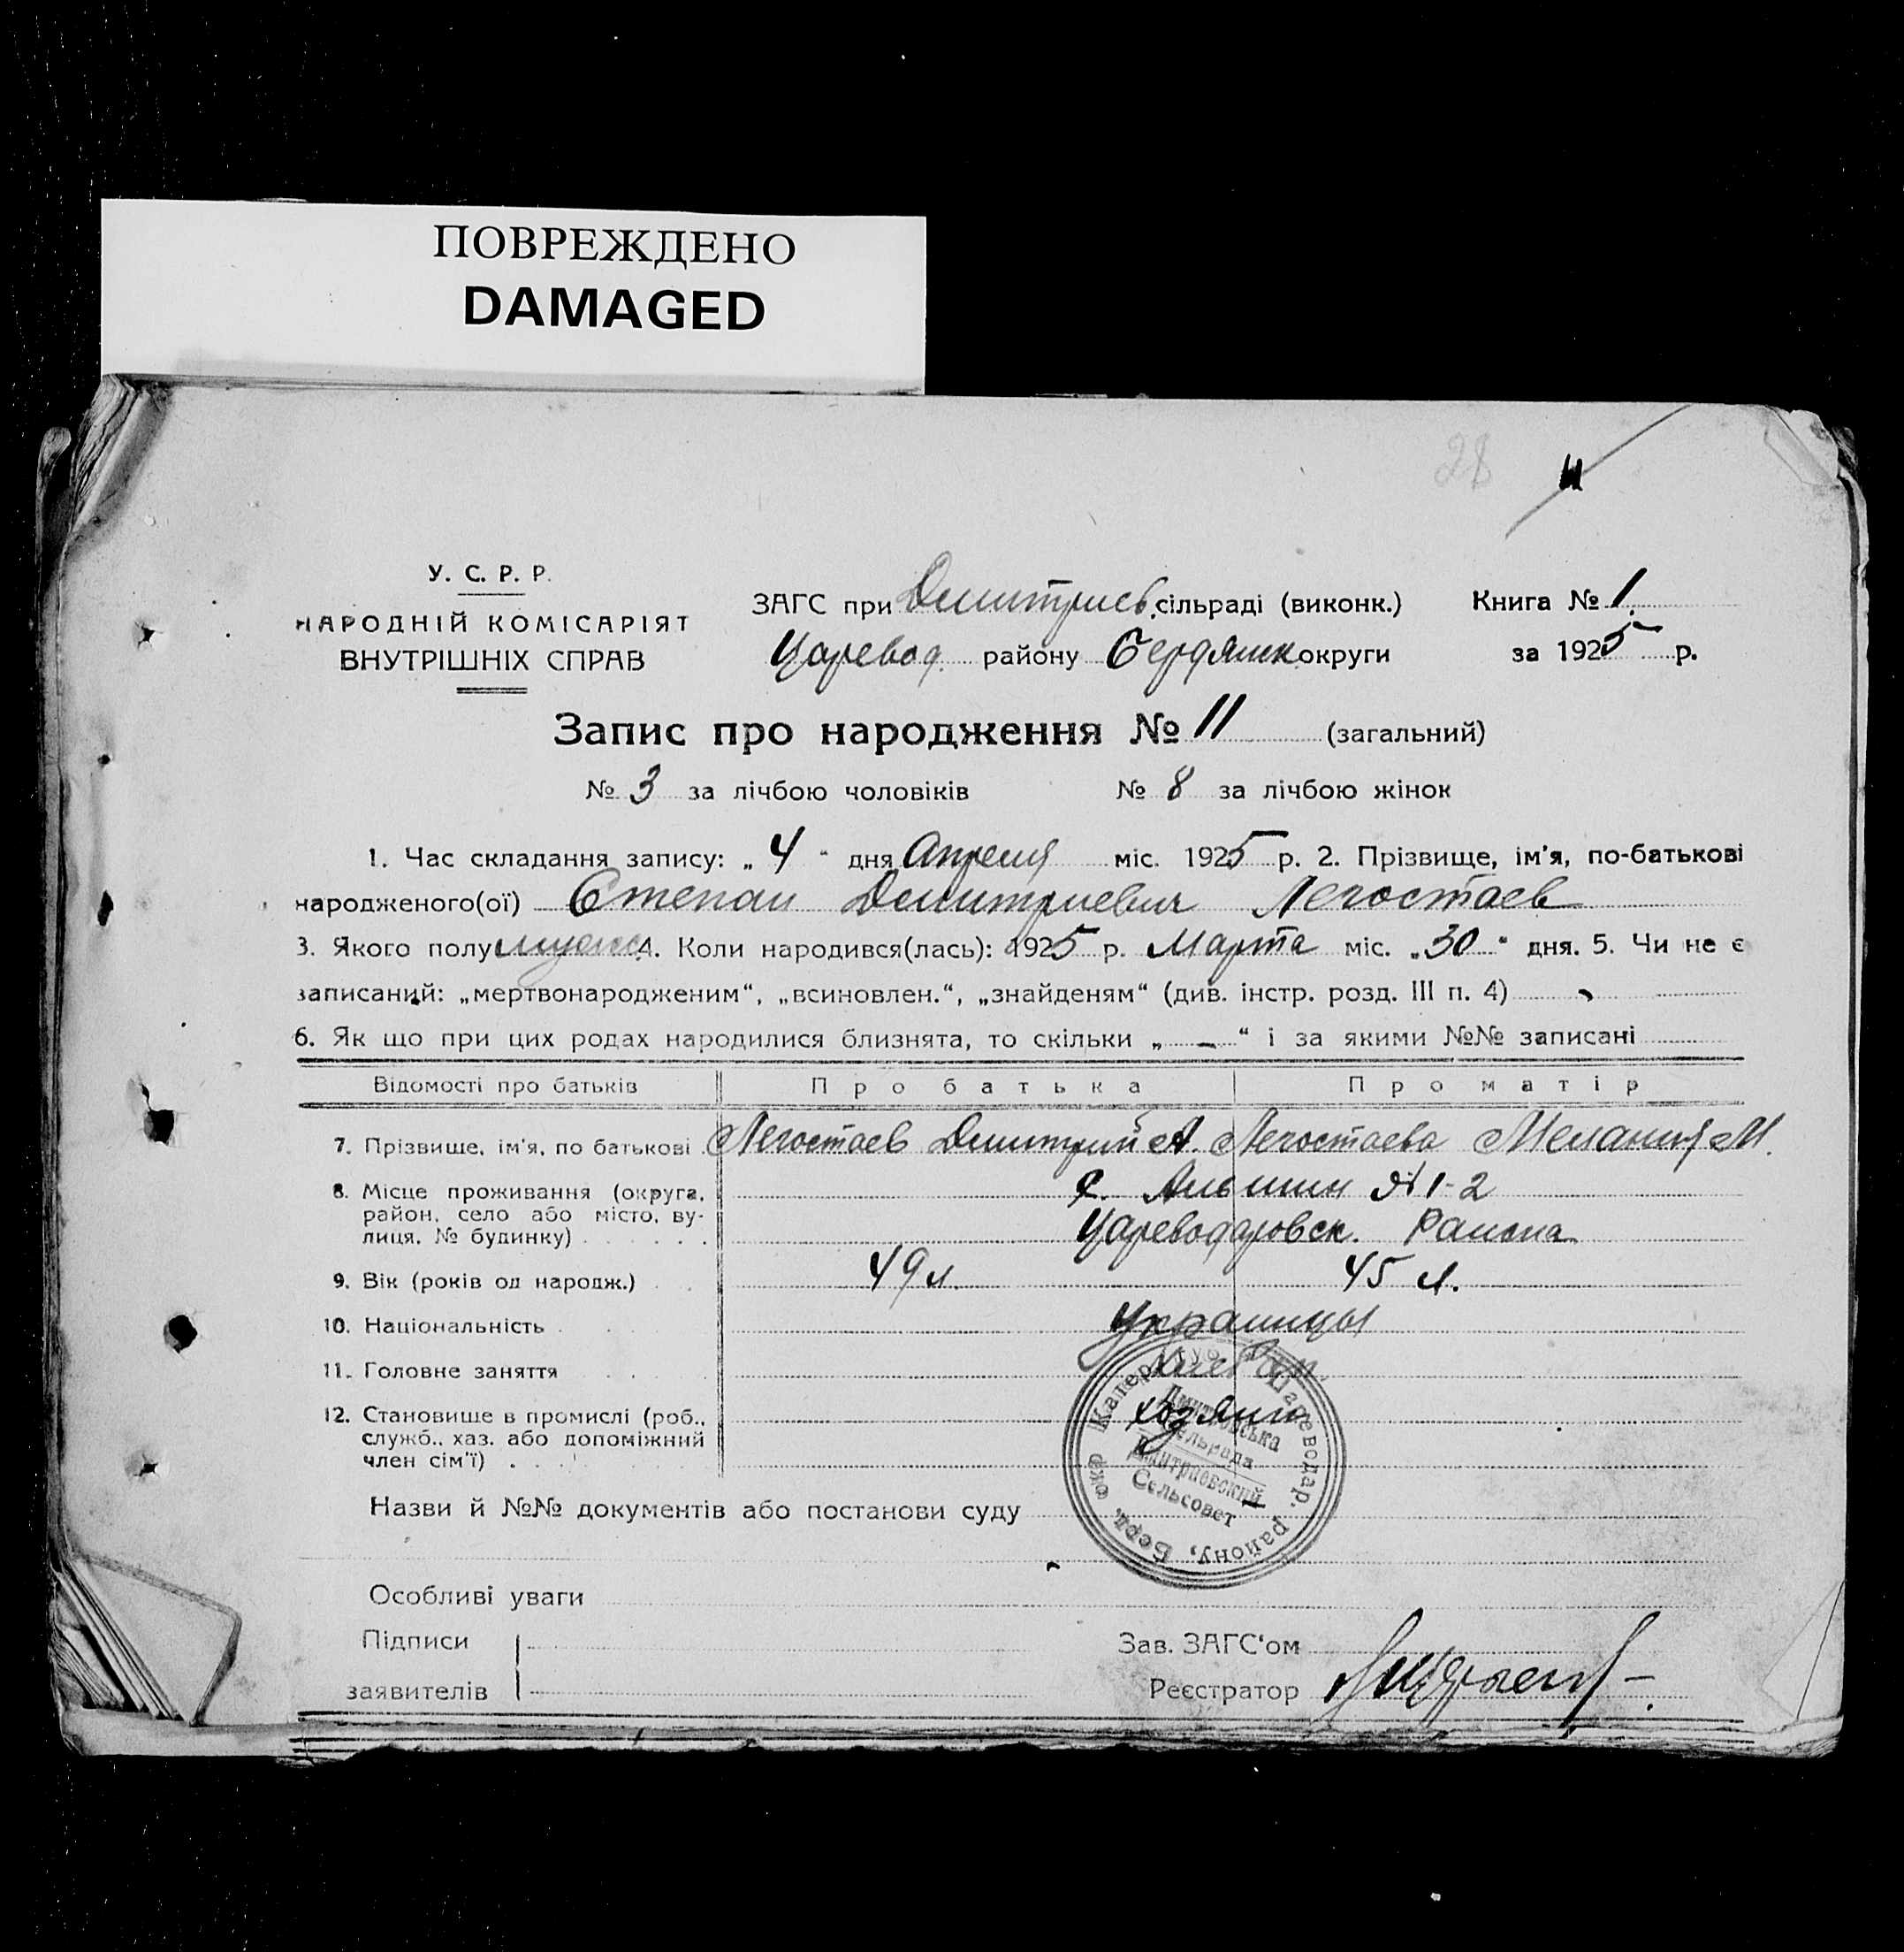 ПОВРЕЖДЕНО
DAMAGED
28
11
У. С. Р. Р.
НАРОДНІЙ КОМІСАРІЯТ
ВНУТРІШНІХ СПРАВ
ЗАГС при Дмитриев. сільраді (виконк.) Книга № 1.
Царевод. району Бердянск округи за 1925 р.
Запис про народження № 11 (загальний)
№ 3 за лічбою чоловіків № 8 за лічбою жінок
1. Час складання запису: „ 4 " дня Апреля міс. 1925 р. 2. Прізвище, ім'я, по-батькові
народженого(ої) Степан Дмитриевич Легостаев
3. Якого полу мужс. 4. Коли народився(лась): 1925 р. Марта міс. „ 30 " дня. 5. Чи не є
записаний: „мертвонародженим", „всиновлен.", „знайденям" (див. інстр. розд. III п. 4)
6. Як що при цих родах народилися близнята, то скільки „ – " і за якими №№ записані
Відомості про батьків Про батька Про матір
7. Прізвище, ім'я, по батькові Легостаев Дмитрий А. Легостаева Мелания М.
8. Місце проживання (округа, район, село або місто, вулиця, № будинку) № 1-2
Цареводаровск. Района
9. Вік (років од народж.) 49 л. 45 л.
10. Національність Украинцы
11. Головне заняття Хлебор.
12. Становище в промислі (роб., служб., хаз. або допоміжний член сім'ї) хозяин
Дмитровська
сельрада
Дмитриевский
Сельсовет
Цареводар. району, Берд. окр.
Назви й №№ документів або постанови суду
Особливі уваги
Підписи Зав. ЗАГС'ом
заявителів Реєстратор